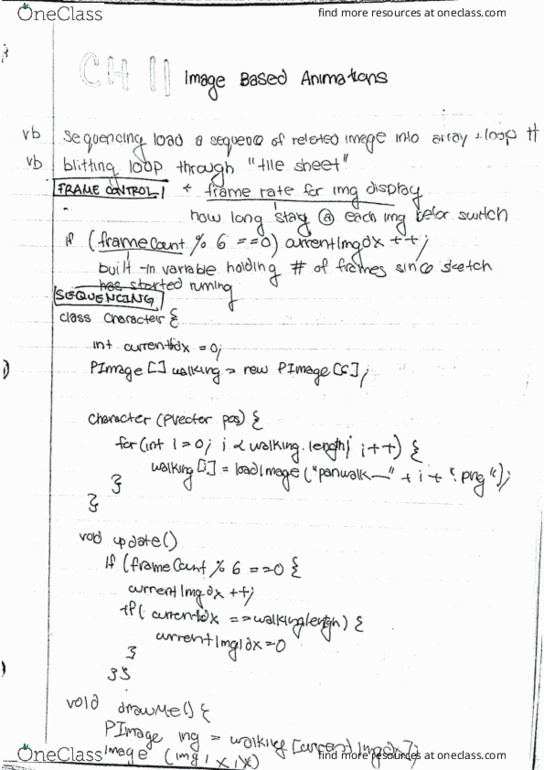 OneClass find more resources at oneclass.com
CH 11 Image Based Animations
vb sequencing load a sequence of related image into array + loop it
vb blitting loop through "tile sheet"
FRAME CONTROL + frame rate for img display
how long stay @ each img befor switch
if (frameCount % 6 == 0) currentImgIdx ++;
built-in variable holding # of frames since sketch
has started running
SEQUENCING
class Character {
int currentIdx = 0;
PImage [] walking = new PImage [6];
character (PVector pos) {
for (int i = 0; i < walking.length; i++) {
walking [i] = loadImage ("panwalk_" + i + ".png");
}
}
void update()
if (frameCount % 6 == 0 {
currentImgIdx ++;
if ( currentIdx == walking.length) {
currentImgIdx = 0
}
}}
void drawMe() {
PImage img = walking [currentImgIdx];
image (img, x, x)
OneClass find more resources at oneclass.com